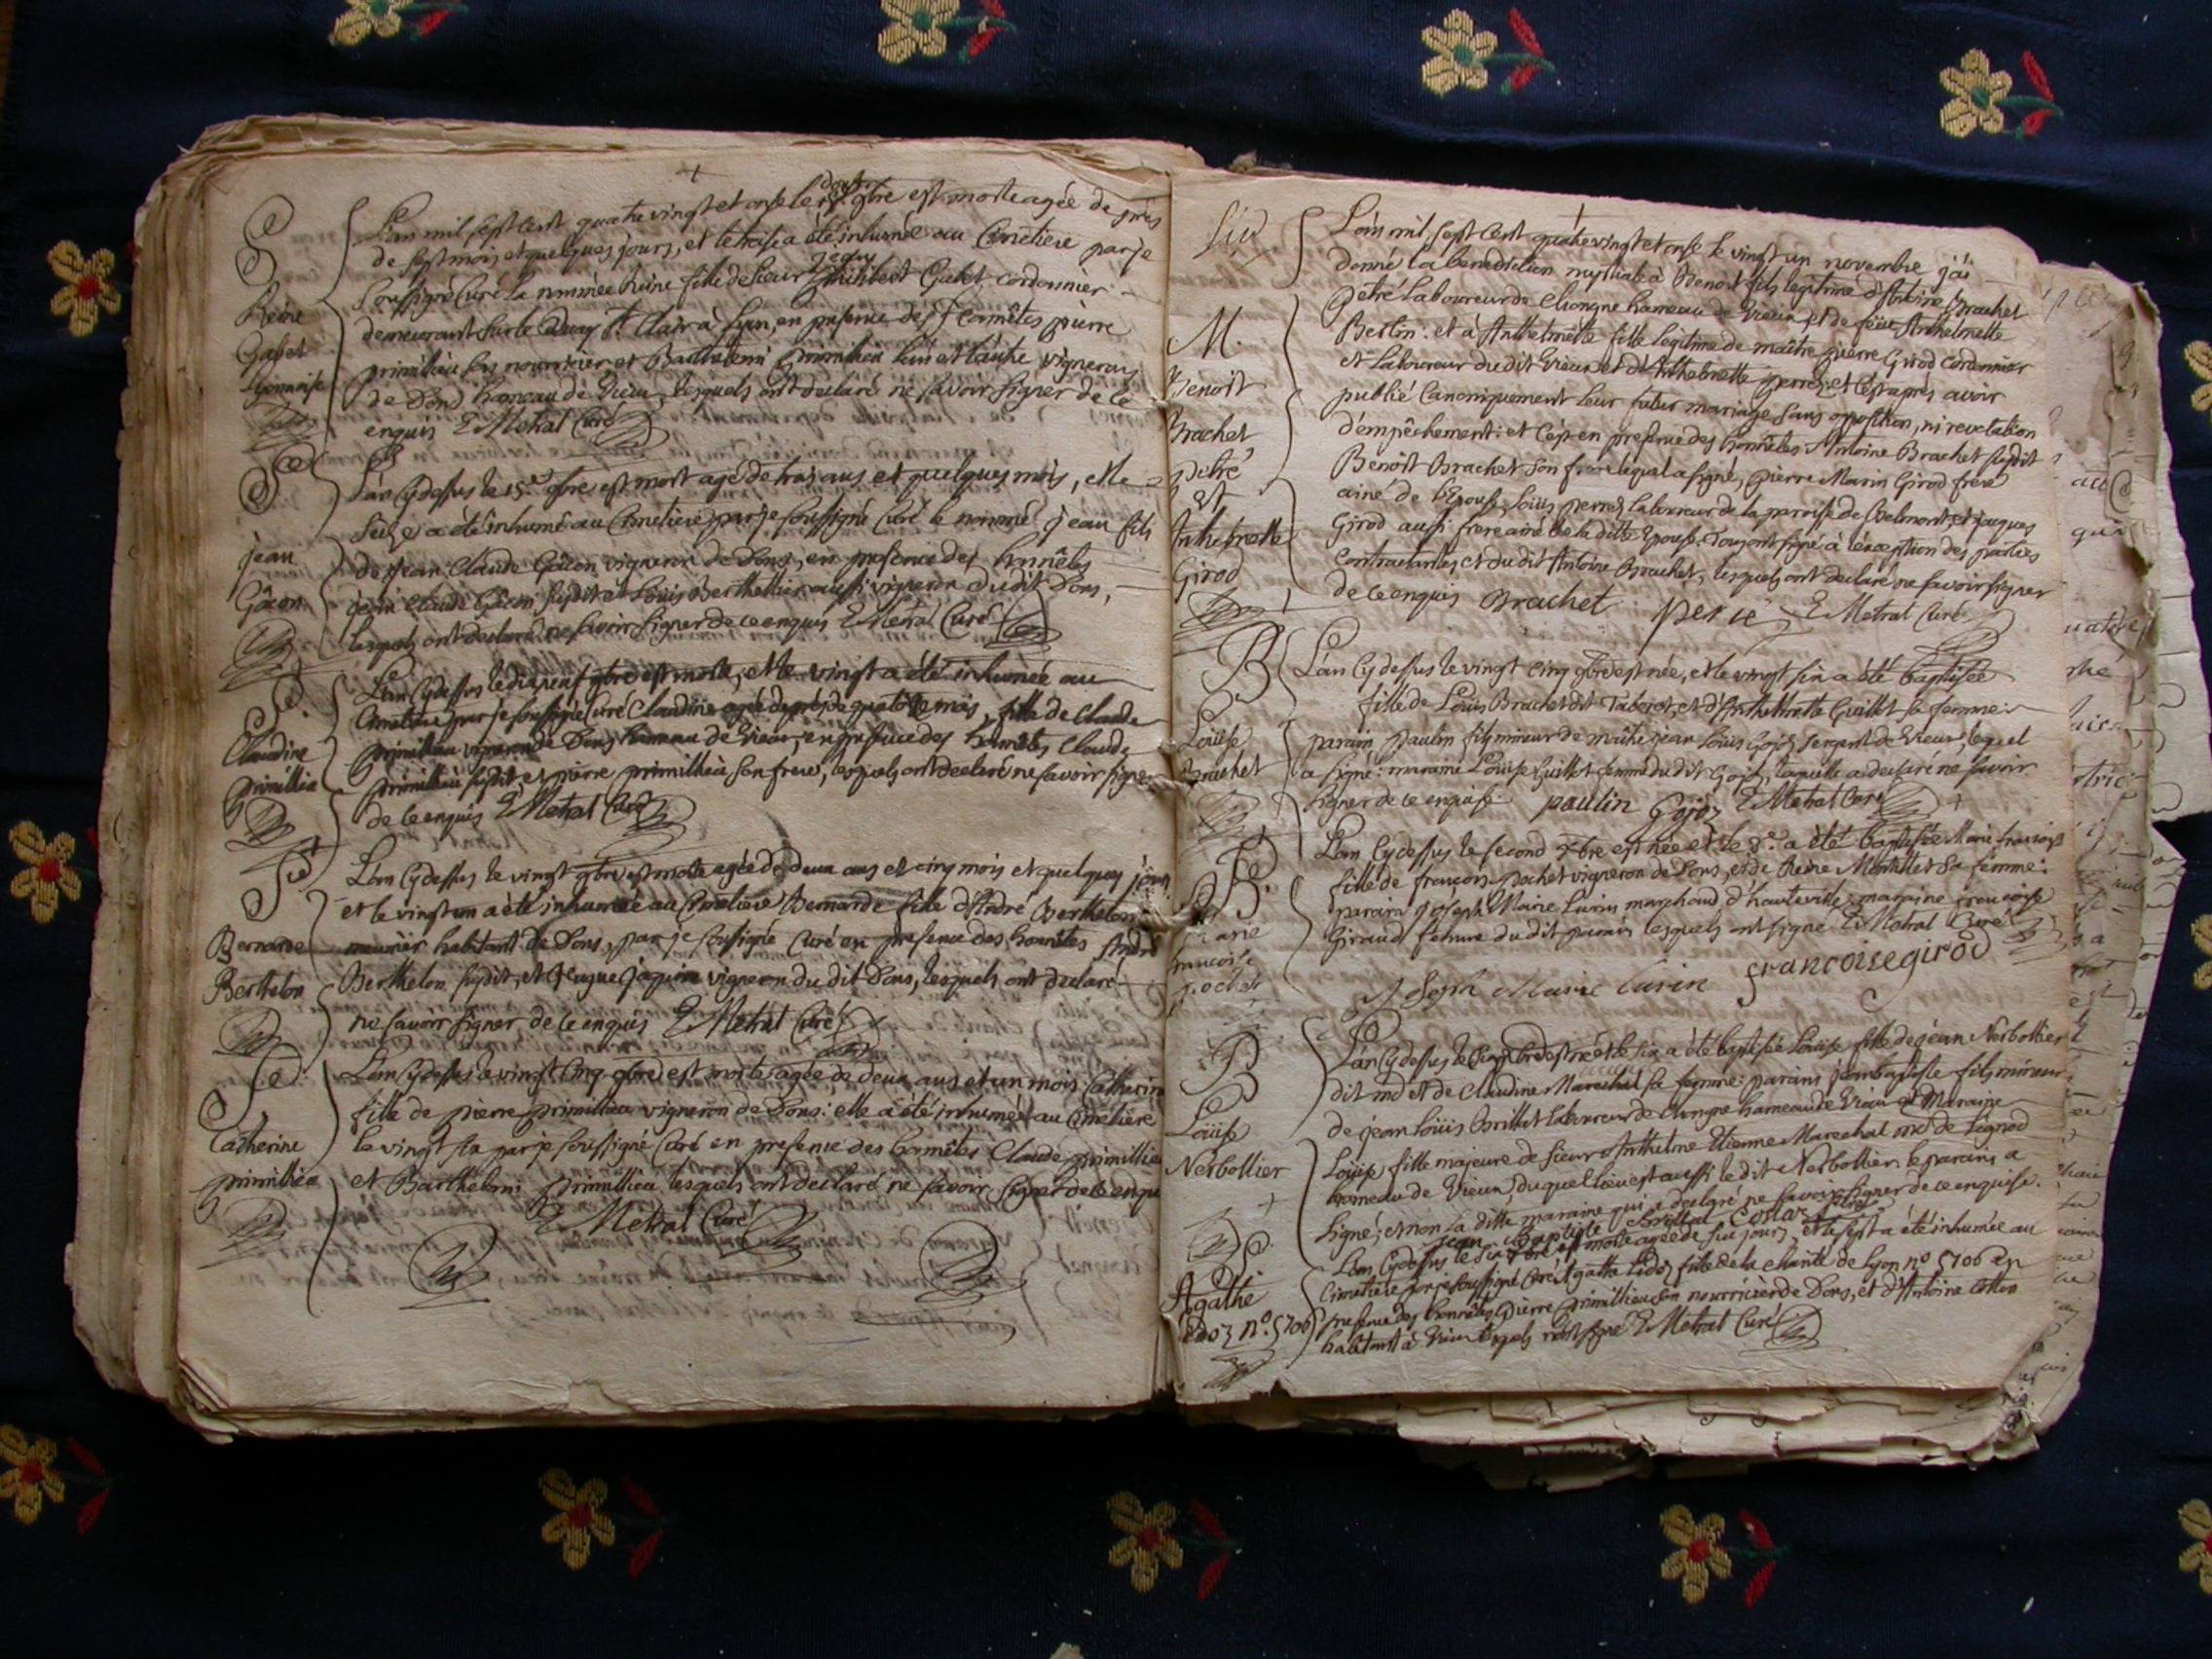 S
Reine
Gabet
Lyonnaise
L'an mil sept cent quatre vingt et onse le douse 9bre est morte agée de près
de sept mois et quelques jours, et le treise a été inhumée au Cimetiere par je
soussigné Curé la nommée Reine fille de sieur jean Gabet cordonnier
demeurant sur le Quay St. Clair à Lyon, en presence des honnêtes pierre
primillieu son nourricier et Barthelemi primillieu l'un et l'autre vignerons
de Dons hameau de Vieu, lesquels ont declaré ne savoir signer de ce
enquis E Metral Curé
Se
jean
Gâcon
L'an cy dessus le 15e 9bre est mort agé de trois ans et quelques mois, et le
seize a été inhumé au Cimetiere par je soussigné Curé le nommé jean fils
de jean Claude Gâcon vigneron de Dons, en presence des honnêtes
jean Claude Gâcon susdit et Louis Berthellier aussi vigneron du dit Dons,
lesquels ont declaré ne savoir signer de ce enquis E Metral Curé
Se.
Claudine
primillieu
L'an cy dessus le dixneuf 9bre est morte, et le vingt a été inhumée au
Cimetiere par je soussigné Curé Claudine agée de près de quatorse mois, fille de Claude
primillieu vigneron de Dons hameau de Vieu, en presence des honnêtes Claude
primillieu susdit et pierre primillieu son frere, lesquels ont declaré ne savoir signer
de ce enquis E Metral Curé
Se
Bernarde
Berthelon
L'an cy dessus le vingt 9bre est morte agée de deux ans et cinq mois et quelques jours
et le vingt un a été inhumée au Cimetiere Bernarde fille d'André Berthelon
meunier habitant de Dons, par je soussigné Curé en presence des honnêtes André
Berthelon susdit, et vigneron du dit Dons, lesquels ont declaré
ne savoir signer de ce enquis E Metral Curé
Se.
Catherine
primillieu
L'an cy dessus le vingt cinq 9bre est morte agée de deux ans et un mois Catherine
fille de pierre primillieu vigneron de Dons: elle a été inhumée au Cimetiere
le vingt six par je soussigné Curé en presence des honnêtes Claude primillieu
et Barthelemi primillieu lesquels ont declaré ne savoir signer de ce enquis
E Metral Curé
M.
Benoit
Brachet
petré
et
Anthelmette
Girod
L'an mil sept cent quatre vingt et onse le vingt un novembre j'ai
donné la benediction nuptiale à Benoit fils legitime d'Antoine Brachet
petré laboureur de Chongne hameau de Vieux et de feüe Anthelmette
Berlin: et à Anthelmette fille legitime de maitre pierre Girod cordonnier
et laboureur du dit Vieu et d'Anthelmette perret et c'est après avoir
publié Canoniquement leur futur mariage sans opposition, ni revelation
d'empêchement: et c'est en presence des honnêtes Antoine Brachet susdit
Benoit Brachet son frere lequel a signé, pierre Marin Girod frere
ainé de l'Epouse, Loüis perret laboureur de la paroisse de Belmont et jacques
Girod aussi frere ainé de la ditte Epouse. Tous ont signé à l'exception des parties
contractantes et du dit Antoine Brachet, lesquels ont declaré ne savoir signer
de ce enquis Brachet E Metral Curé
B
Loüise
Brachet
L'an cy dessus le vingt cinq 9bre est née, et le vingt six a été baptisée
fille de Louis Brachet dit Taboret, et d'Anthelmette Guillet sa femme:
parain paulin fils mineur de maitre jean Loüis Gojoz sergent de Vieu, lequel
a signé: maraine Loüise Guillet femme du dit Gojoz, laquelle a declaré ne savoir
signer de ce enquise paulin Gojoz E Metral Curé
B.
Marie
francoise
pochet
L'an cy dessus le second Xbre est née et le 3e a été baptisée Marie francoise
fille de francois pochet vigneron de Dons, et de Reine Montillet sa femme:
parain joseph Marie Lurin marchand d'hauteville, marraine francoise
Giraud femme du dit parain lesquels ont signé E Metral Curé
Joseph Marie Lurin francoise girod
B
Loüise
Nerbollier
L'an cy dessus le cinq Xbre est née et le six a été baptisée Louise fille de jean Nerbollier
dit md et de Claudine Marechal sa femme: parain jean baptiste fils mineur
de jean Loüis Brillat laboureur de Chongne hameau de Vieu et Maraine
Loüise fille majeure de sieur Anthelme Etienne Marechal md de Lignod
hameau de Vieux, duquel lieu est aussi le dit Nerbollier: le parain a
signé, et non la ditte maraine qui a declaré ne savoir signer de ce enquise.
jean Baptiste Brillat
S.
Agathe
Lidoz no. 5706
L'an cy dessus le six Xbre est morte agée de six jours, et le sept a été inhumée au
Cimetiere par je soussigné Curé Agathe Lidoz fille de la charité de Lyon no 5706 en
presence des honnêtes pierre primillieu son nourricier de Dons, et d'Antoine
habitant à Vieu lesquels n'ont signé E Metral Curé